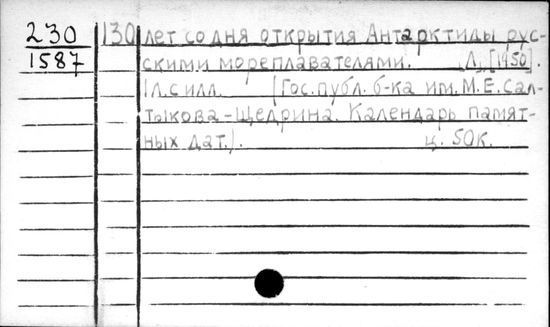 230 130 лет со дня открытия Антарктиды рус-
1587 скими мореплавателями. Л., [1950].
1л. с илл. (Гос. публ. б-ка им. М. Е. Сал-
тыкова-Щедрина. Календарь памят-
ных дат.). ц. 50к.